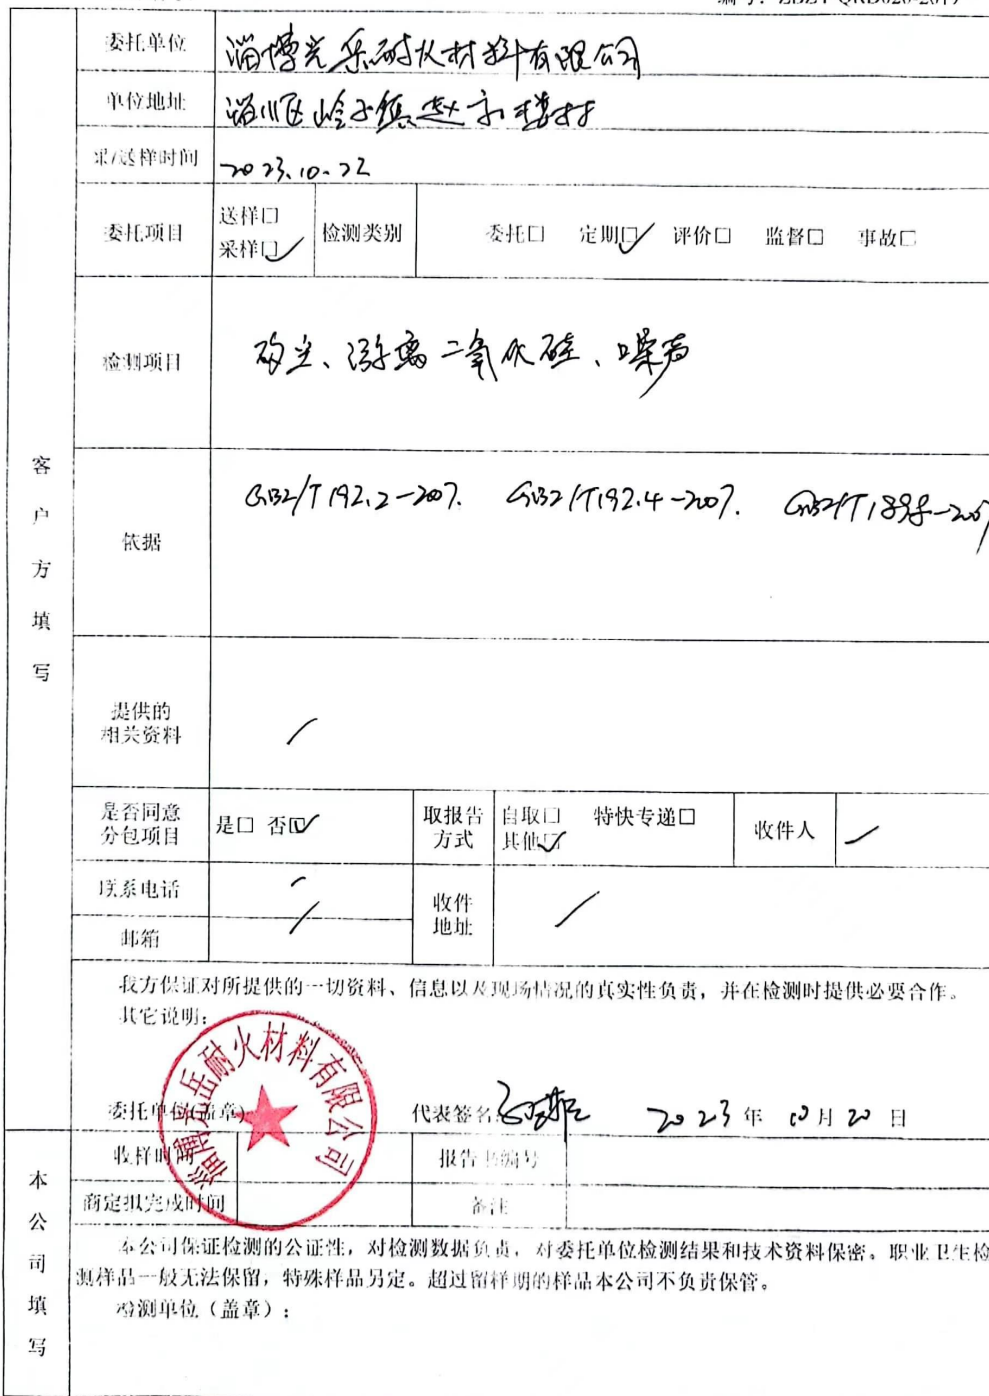 委托单位 淄博光岳耐火材料有限公司
单位地址 淄川区岭子镇
采/送样时间 2023.10.22
委托项目 送样□ 采样□✓ 检测类别 委托□ 定期□✓ 评价□ 监督□ 事故□
检测项目 矽尘、游离二氧化硅、噪声
依据 GBZ/T 192.2-2007. GBZ/T 192.4-2007. GBZ/T 189.8-2007
提供的相关资料 /
是否同意分包项目 是□ 否□✓ 取报告方式 自取□ 特快专递□ 其他□✓ 收件人 /
联系电话 / 收件地址 /
邮箱 /
客户方填写
我方保证对所提供的一切资料、信息以及现场情况的真实性负责，并在检测时提供必要合作。
其它说明：
淄博光岳耐火材料有限公司
委托单位(盖章) 代表签名: 2023 年 10 月 20 日
收样时间 报告书编号
商定拟完成时间 备注
本公司填写
本公司保证检测的公证性，对检测数据负责，对委托单位检测结果和技术资料保密。职业卫生检
测样品一般无法保留，特殊样品另定。超过留样期的样品本公司不负责保管。
检测单位（盖章）：